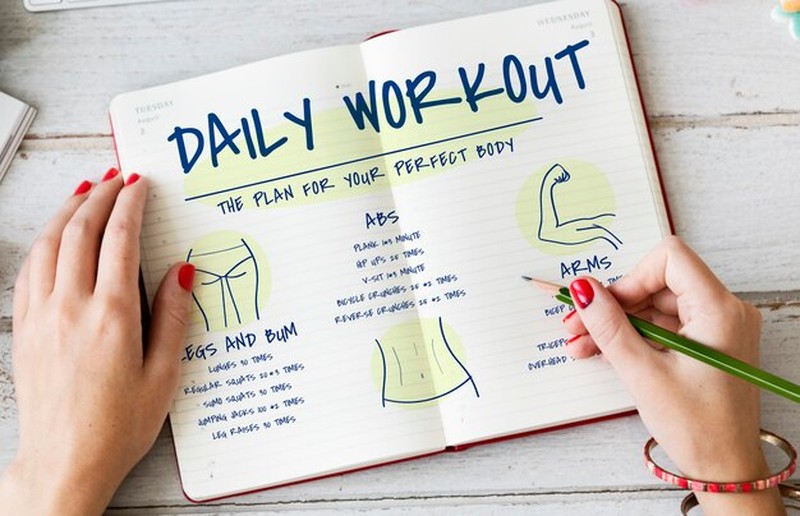 TUESDAY
August
2
WEDNESDAY
August
3
DAILY WORKOUT
THE PLAN FOR YOUR PERFECT BODY
LEGS AND BUM
LUNGES 30 TIMES
REGULAR SQUATS 20*3 TIMES
SUMO SQUATS 30 TIMES
JUMPING JACKS 100 *2 TIMES
LEG RAISES 30 TIMES
ABS
PLANK 1*3 MINUTE
UPS 25 TIMES
V-SIT 1*3 MINUTE
BICYCLE CRUNCHES 25 *2 TIMES
REVERSE CRUNCHES 25 *2 TIMES
ARMS
BICEP
TRICEPS
OVERHEAD